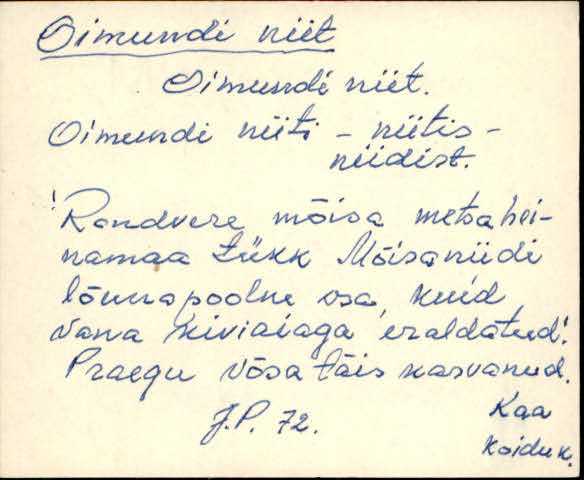 Oimundi niit
Oimundi niit.
Oimundi niiti - niitis -
niidist.
'Randvere mõisa metsahei-
namaa tükk Mõisaniidi
lõunapoolne osa, kuid
vana kiviaiaga eraldatud'.
Praegu võsa täis kasvanud.
J.P. 72.
Kaa
Koiduk.